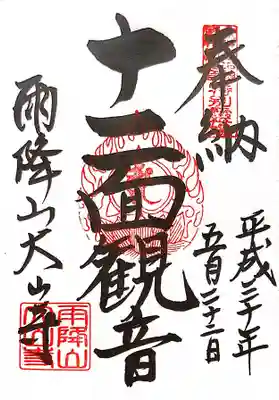 奉納
平成三十年
五月二十二日
十一面観音
雨降山大山寺
雨降山